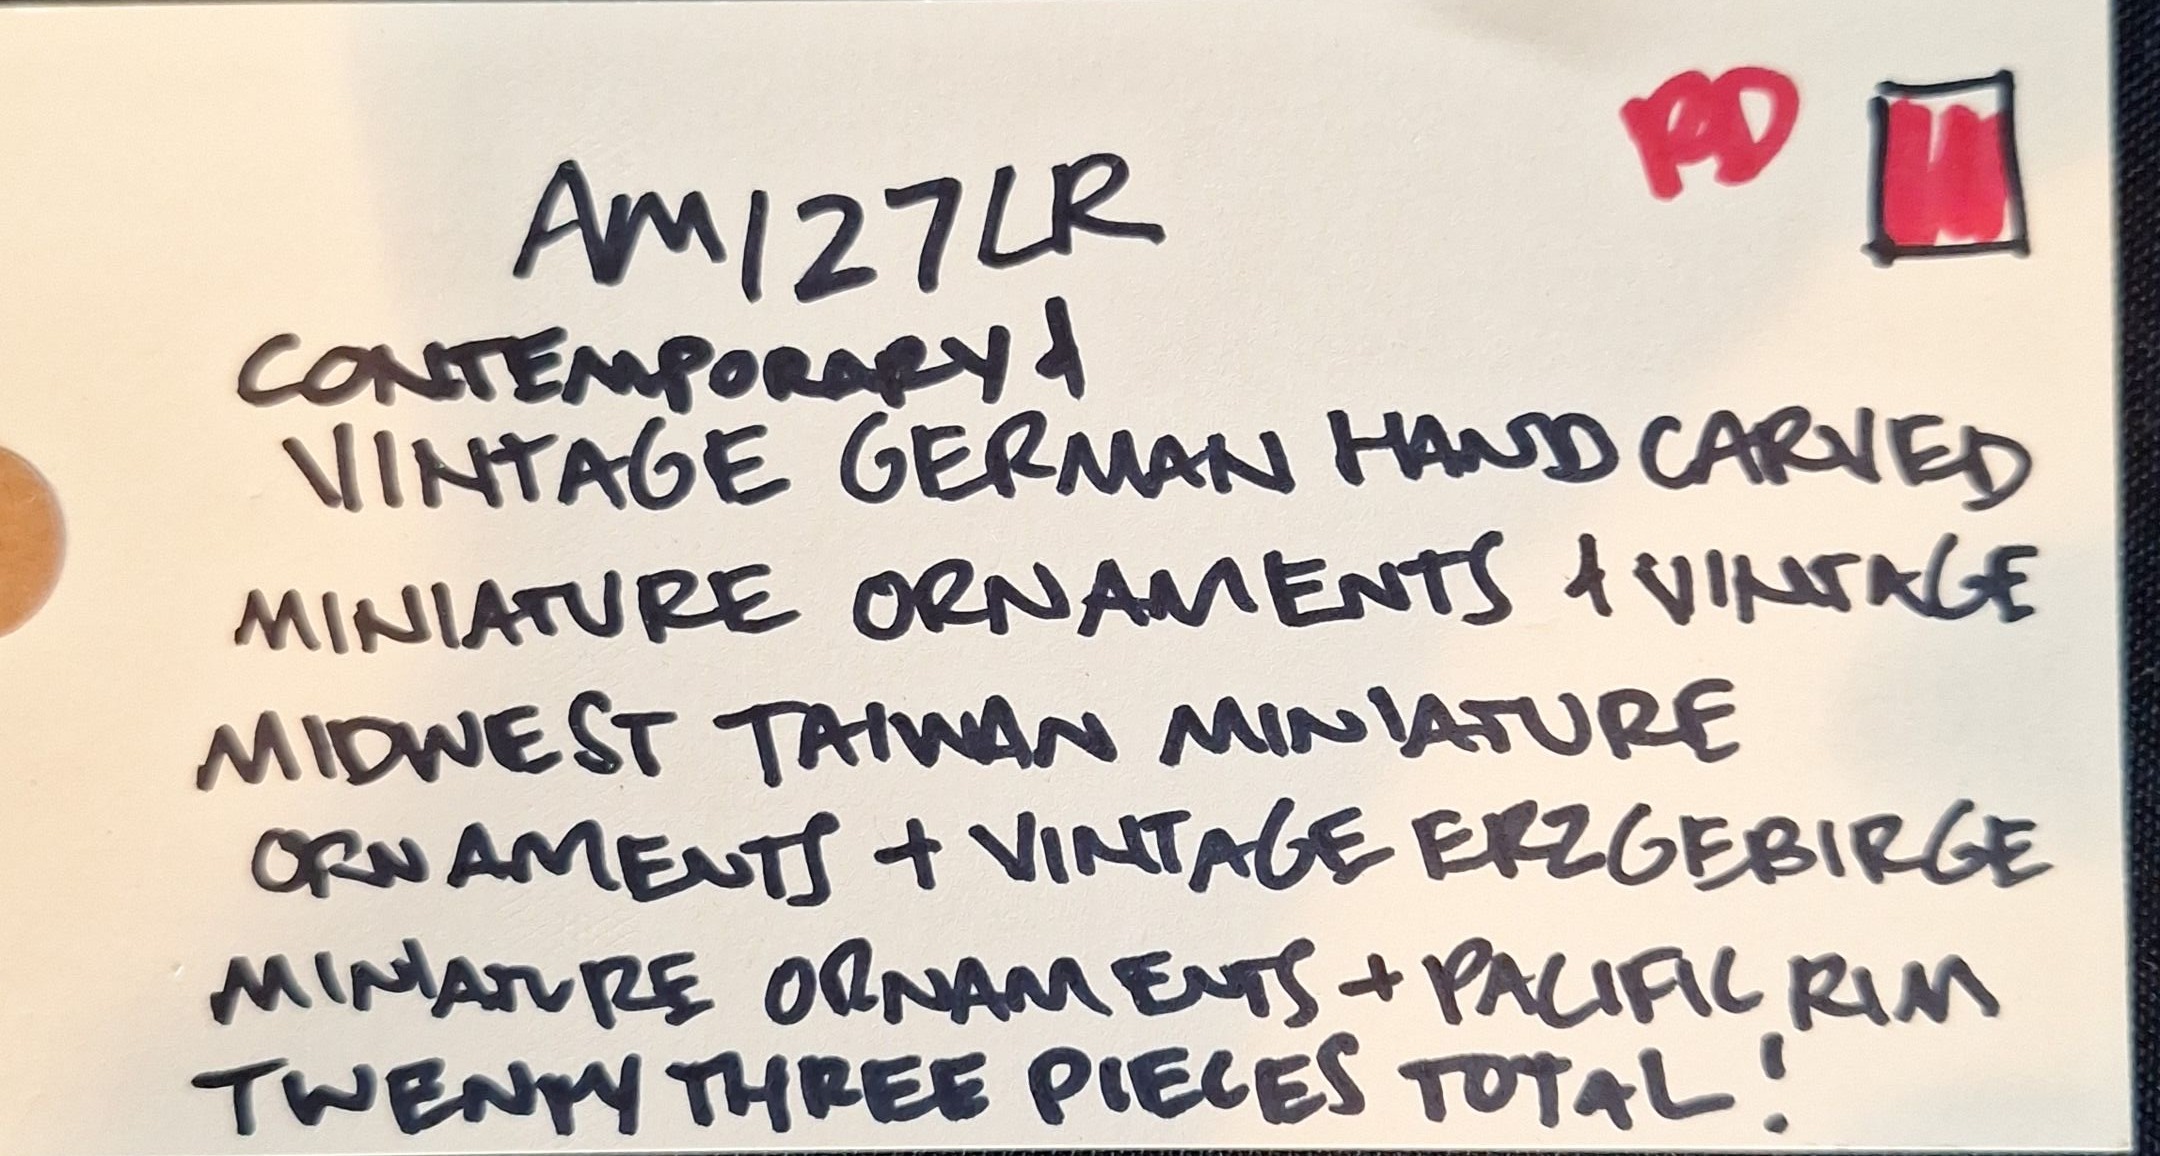 RD
AM127LR
CONTEMPORARY &
VINTAGE GERMAN HAND CARVED
MINIATURE ORNAMENTS & VINTAGE
MIDWEST TAIWAN MINIATURE
ORNAMENTS + VINTAGE ERZGEBIRGE
MINIATURE ORNAMENTS + PACIFIC RIM
TWENTY THREE PIECES TOTAL!